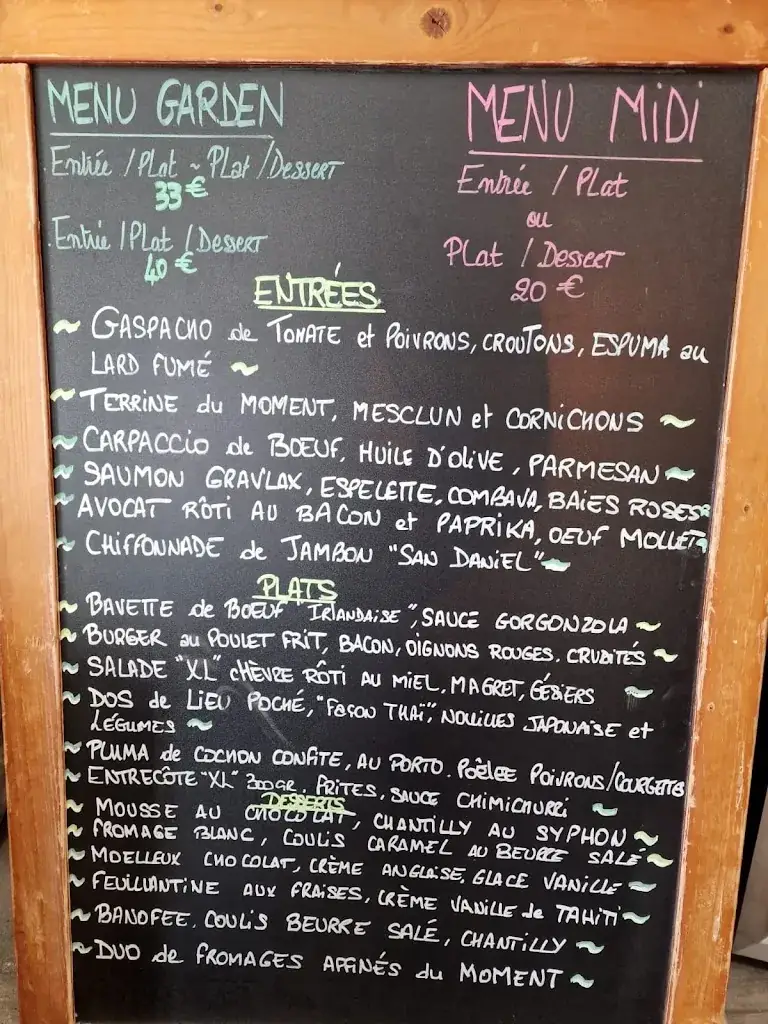 MENU GARDEN
Entrée / Plat ~ Plat / Dessert
33 €
Entrée / Plat / Dessert
40 €
MENU MiDi
Entrée / Plat
ou
Plat / Dessert
20 €
ENTRÉES
~ GASPACHO de TOMATE et POIVRONS, CROUTONS, ESPUMA au
LARD FUMÉ ~
~ TERRINE du MOMENT, MESCLUN et CORNICHONS ~
~ CARPACCIO de BOEUF, HUILE D'OLIVE, PARMESAN ~
~ SAUMON GRAVLAX, ESPELETTE, COMBAVA, BAIES ROSES ~
~ AVOCAT RÔTI AU BACON et PAPRIKA, OEUF MOLLET ~
~ CHIFFONNADE de JAMBON "SAN DANIEL" ~
PLATS
~ BAVETTE de BOEUF "IRLANDAISE", SAUCE GORGONZOLA ~
~ BURGER au POULET FRIT, BACON, OIGNONS ROUGES, CRUDITÉS ~
~ SALADE "XL" CHÈVRE RÔTI AU MIEL, MAGRET, GÉSIERS ~
~ DOS de LIEU POCHÉ, "FAÇON THAÏ", NOUILLES JAPONAISE et
LÉGUMES ~
~ PLUMA de COCHON CONFITE, AU PORTO. POÊLÉE POIVRONS/COURGETTES
~ ENTRECÔTE "XL" 300GR, FRITES, SAUCE CHIMICHURRI ~
DESSERTS
~ MOUSSE AU CHOCOLAT, CHANTILLY AU SYPHON ~
~ FROMAGE BLANC, COULIS CARAMEL AU BEURRE SALÉ ~
~ MOELLEUX CHOCOLAT, CRÈME ANGLAISE, GLACE VANILLE ~
~ FEUILLANTINE AUX FRAISES, CRÈME VANILLE de TAHITI ~
~ BANOFEE, COULIS BEURRE SALÉ, CHANTILLY ~
~ DUO de FROMAGES AFFINÉS du MOMENT ~